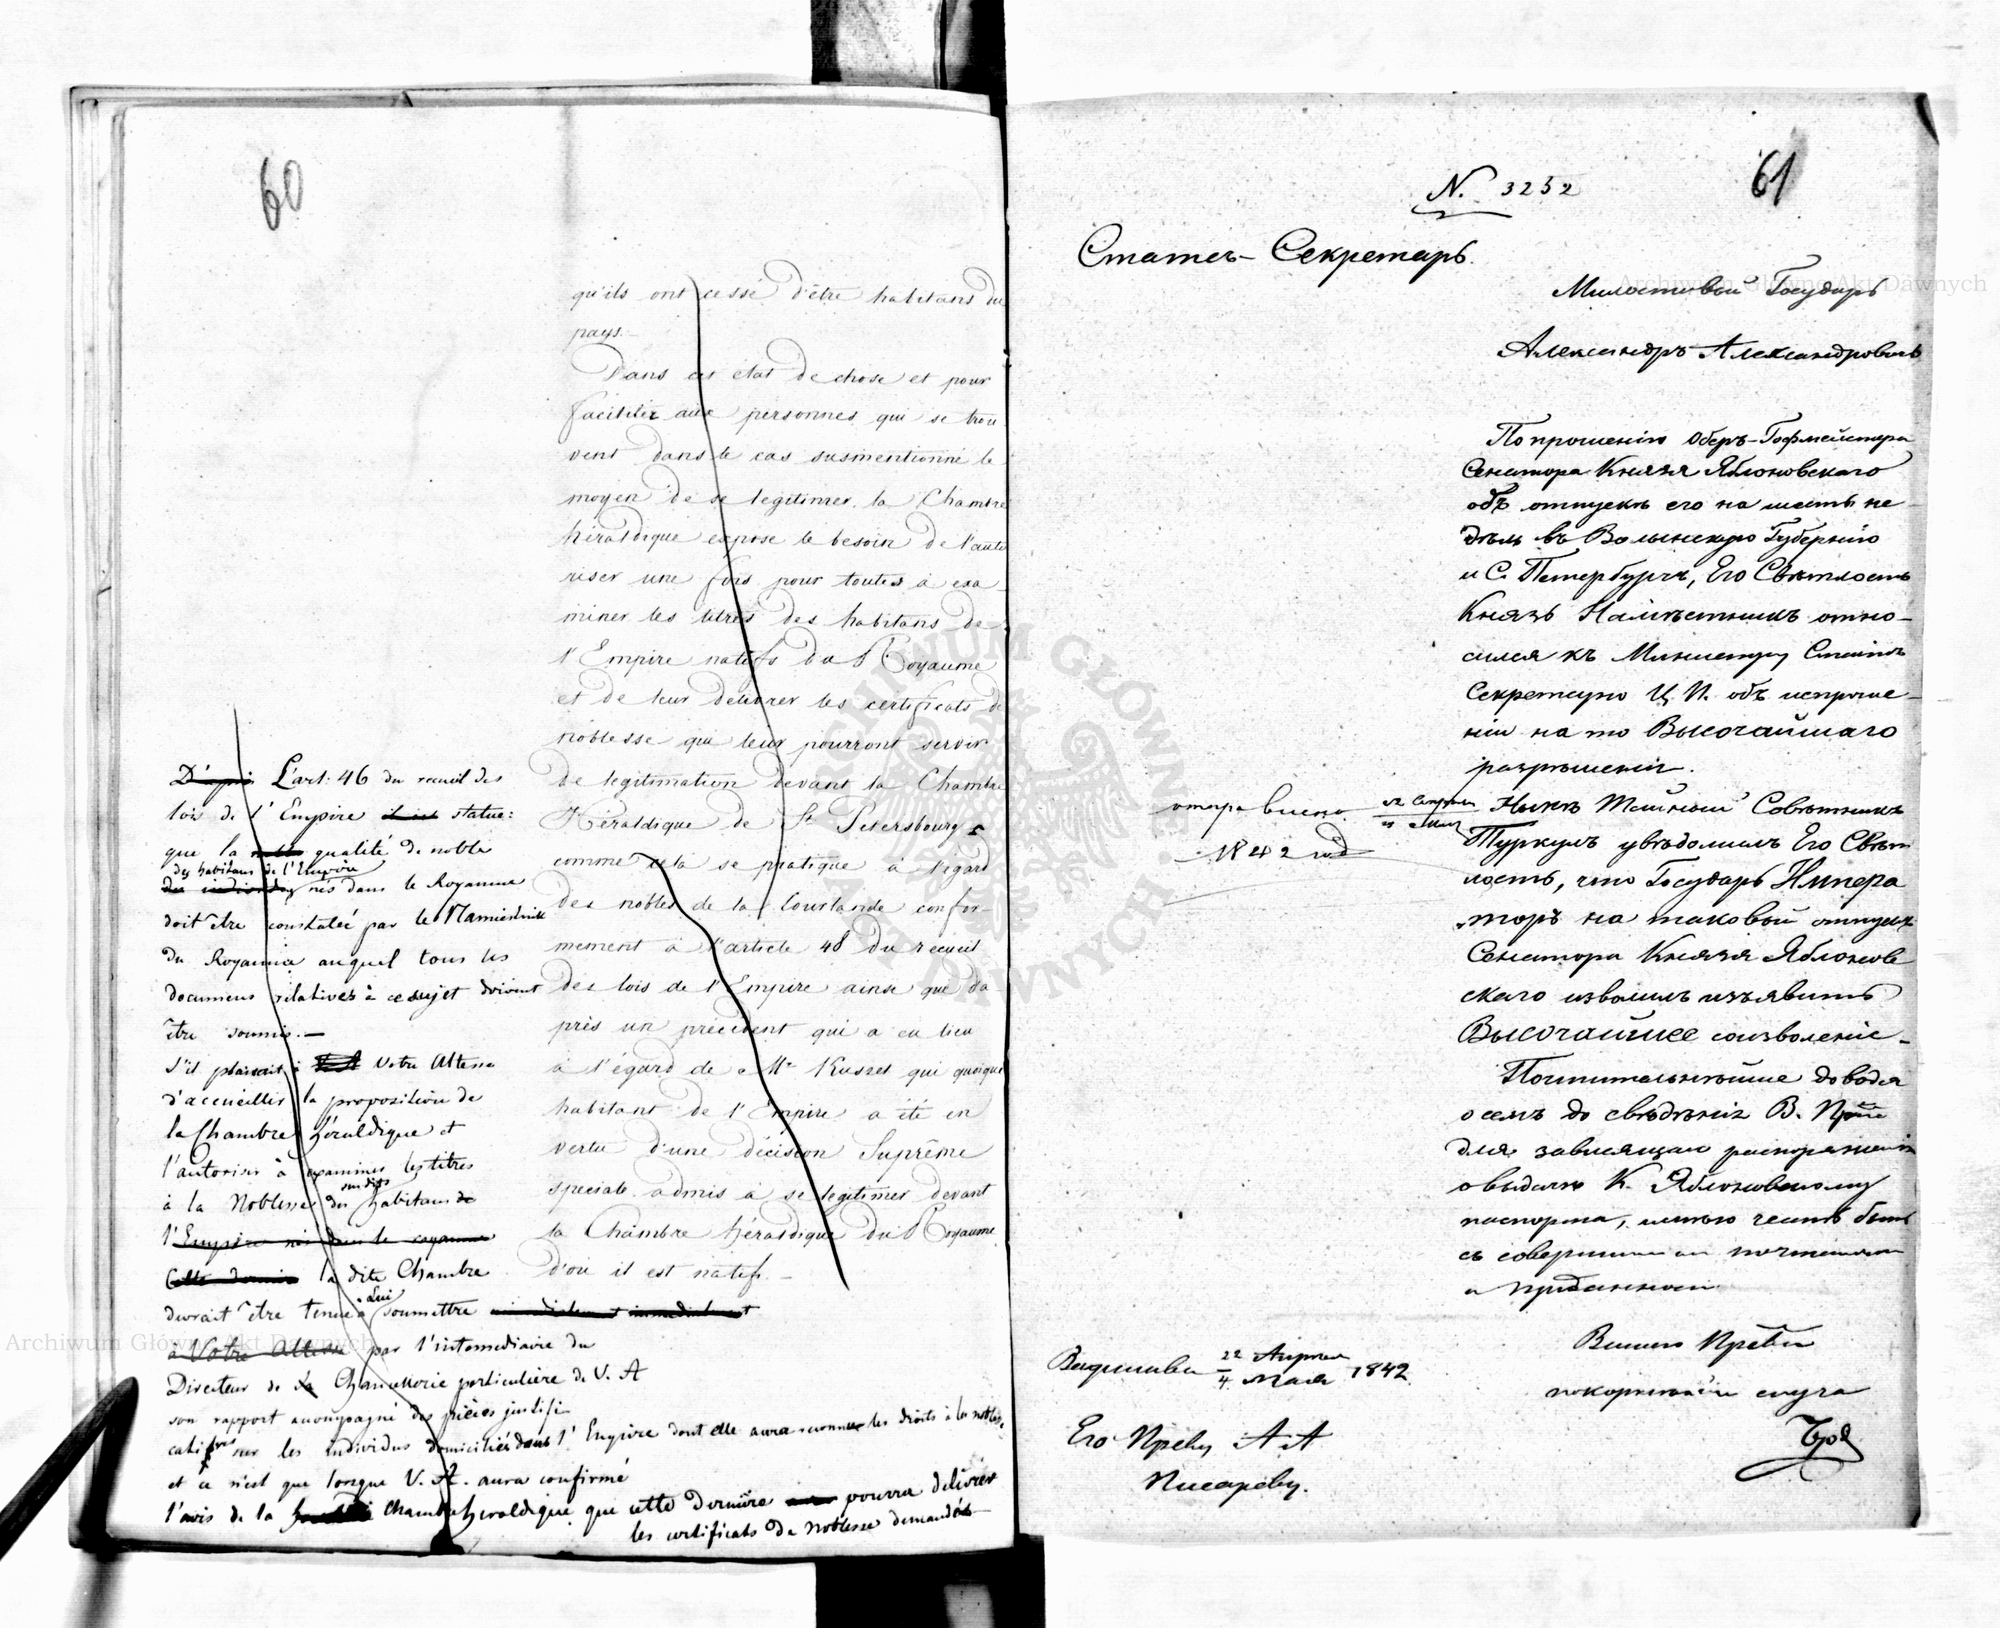 60
qu'ils ont cessé d'être habitans du
pays.
Dans cet état de chose et pour
faciliter aux personnes qui se trou
vent dans le cas susmentionné le
moyen de se legitimer, la Chambre
héraldique expose le besoin de l'auto
riser une fois pour toutes à exa
miner les titres des habitans de
l'Empire natifs du Royaume
et de leur delivrer les certificats de
noblesse qui leur pourront servir
de legitimation devant la Chambre
Héraldique de St Petersbourg
comme cela se pratique à l'égard
des nobles de la Courlande confor-
mement à l'article 48 du recueil
des lois de l'Empire ainsi que d'a
près un précédent qui a eu lieu
à l'égard de Mr Kusset qui quoique
habitant de l'Empire a été en
vertu d'une décision Suprême
speciale admis à se legitimer devant
la Chambre héraldique du Royaume
d'où il est natif.
D'après L'art: 46 du recueil des
lois de l'Empire statue:
que la qualité de noble
des habitans de l'Empire
nés dans le Royaume
doit être constatée par le Namiestnik
du Royaume auquel tous les
documens relatives à ce sujet doivent
être soumis. —
S'il plaisait à Votre Altesse
d'accueillir la proposition de
la Chambre héraldique et
l'autoriser à examiner les titres
à la Noblesse des susdits habitans de
l'Empire nés dans le royaume
Cette dernière la dite Chambre
devrait être tenue à Lui soumettre
à Votre Altesse par l'intermediaire du
Directeur de la Chancellerie particulière de V. A
son rapport accompagné des pièces justifi
catifves sur les individus domiciliés dans l'Empire dont elle aura reconnue les droits à la noblesse
et ce n'est que lorsque V. A. aura confirmé
l'avis de la Chambre heraldique que cette dernière pourra delivrer
les certificats de noblesse demandés
61
N. 3252
Статсъ-Секретарь.
Милостивый Государь
Александръ Александровичъ
По прошенію Оберъ-Гофмейстера
Сенатора Князя Яблоновскаго
объ отпускѣ его на шесть не
дѣль въ Волынскую Губернію
и С. Петербургъ, Его Свѣтлость
Князь Намѣстникъ отно-
сился къ Министру Статсъ
Секретарю Ц. П. объ испроше-
ніи на то Высочайшаго
разрѣшенія.
Нынѣ Тайный Совѣтникъ
Туркулъ увѣдомилъ Его Свѣт
лость, что Государь Импера
торъ на таковый отпускъ
Сенатора Князя Яблонов
скаго изволилъ изъявить
Высочайшее соизволеніе.
Почтительнѣйше доводя
о семъ до свѣдѣнія В. Прев
для зависящаго распоряженія
о выдачѣ К. Яблоновскому
паспорта, имѣю честь быть
съ совершеннымъ почтеніемъ
и преданностію
Вашего Превва
покорнѣйшій слуга
отправлено
1842 года
Варшава 22 Апрѣля / 4 Мая 1842.
Его Превву А А
Писареву.